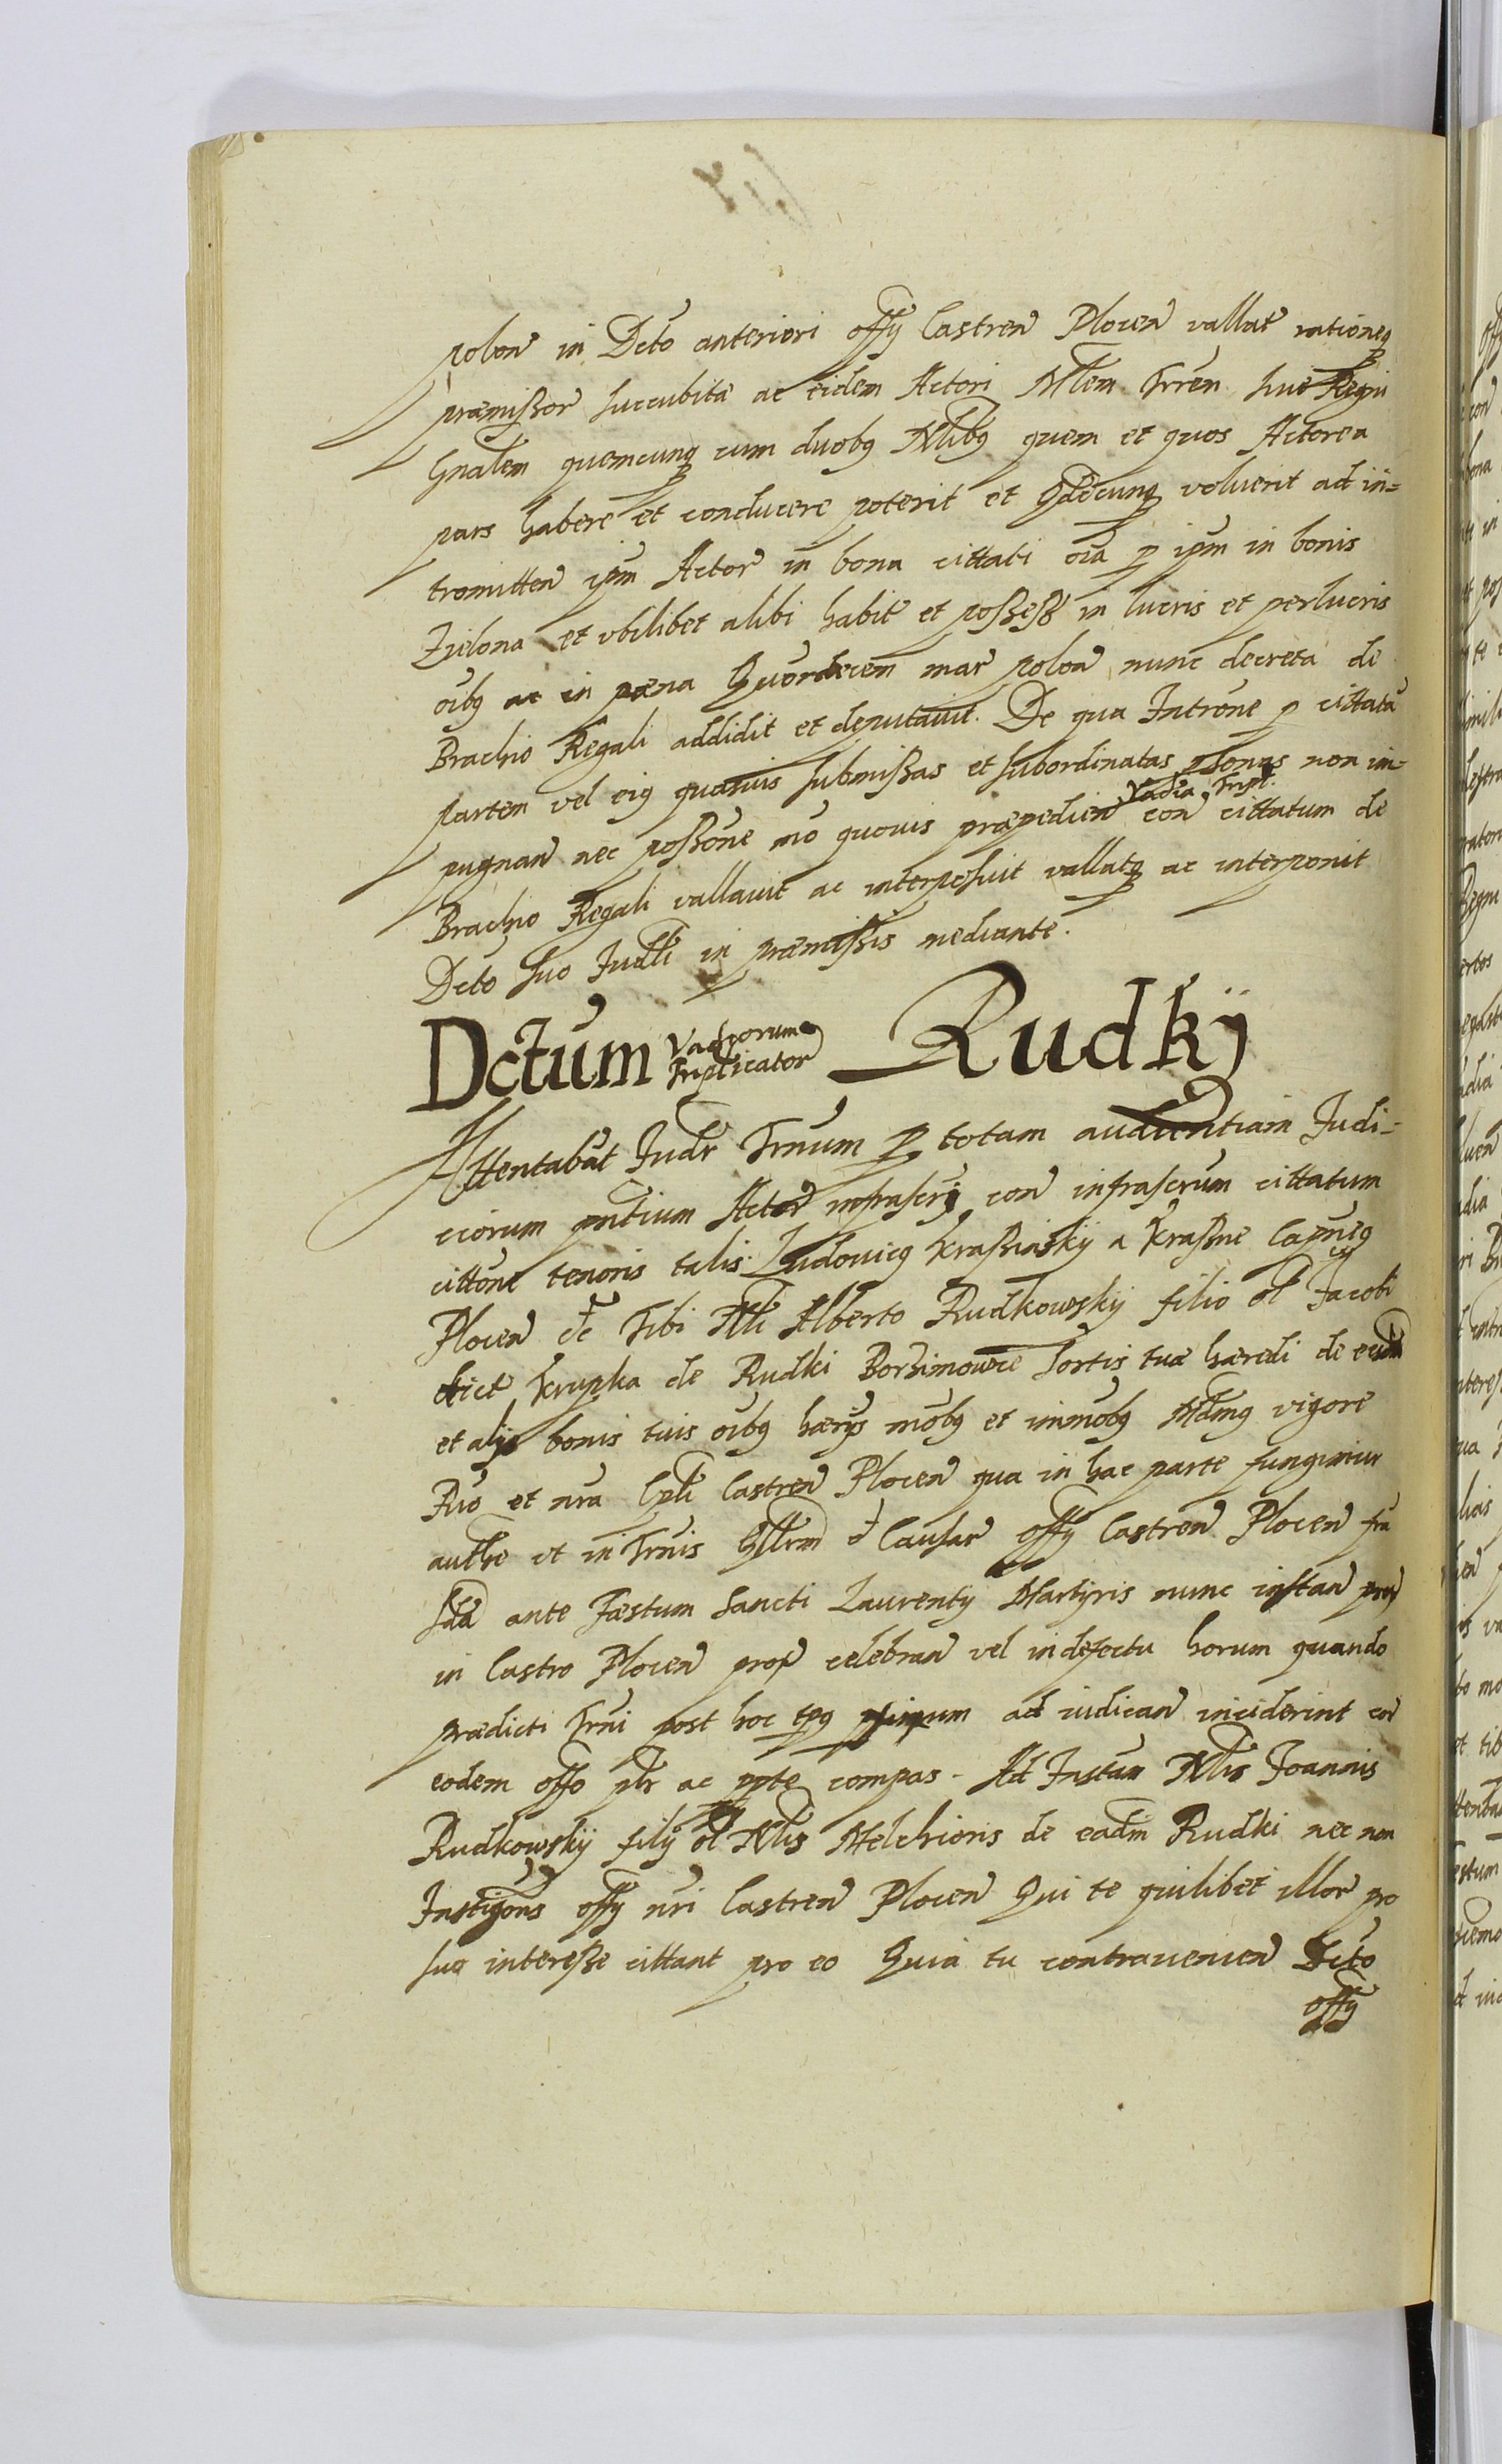 polon in Dcto anteriori offy Castren Plocen vallat rationeq
præmissor succubita ac eidem Actori Mlem Trrem siue Regni
Gnalem quemcunq cum duobq Nlibq quem et quos Actorea
pars habere et conducere poterit et Qdocunq voluerit ad in=
tromitten ipm Actor in bona cittati oia p ipm in bonis
Zielona et vbilibet alibi habit et possess in lucris et perlucris
oibq ac in pæna Quordecem mar polon nunc decreta de
Brachio Regali addidit et deputauit. De qua Introne p cittata
partem vel eiq quasuis submissas et subordinatas psonas non im-
pugnan nec possone mo quouis præpedien Vadia Tripl. con cittatum de
Brachio Regali vallauit ac interposuit vallatq ac interponit
Dcto suo Judli in præmissis mediante.
Dctum Vadiorum Triplicator Rudkÿ
Attentabat Judr Trnum p totam audientiam Judi-
ciorum pntium Actor infrascry con infrascrum cittatum
cittone tenoris talis. Ludouicq Krassinskÿ a Krassne Capneq
Plocen &c Tibi Nli Alberto Rudkowskÿ filio ol Jacobi
dict Krupka de Rudki Borzimowce sortis tuæ hæredi de eadm
et alys bonis tuis oibq hærys mobq et immobq Mdmq vigore
Rio et nra Cpli Castren Plocen qua in hac parte fungimur
authe vt in Trnis Qstrm & Causar offy Castren Plocen fra
sda ante Fæstum Sancti Laurenty Martyris nunc instan prox
in Castro Plocen prox celebran vel in defectu horum quando
prædicti Trni post hoc tpq primum ad iudican inciderint cor
eodem offo plr ac ppte compas - Ad Instam Nlis Joannis
Rudkowskÿ filÿ ol Nlis Melchioris de eadm Rudki nec non
Instigons offy nri Castren Plocen Qui te quilibet illor pro
suo interesse cittant pro eo Quia tu contrauenien Dcto
offy